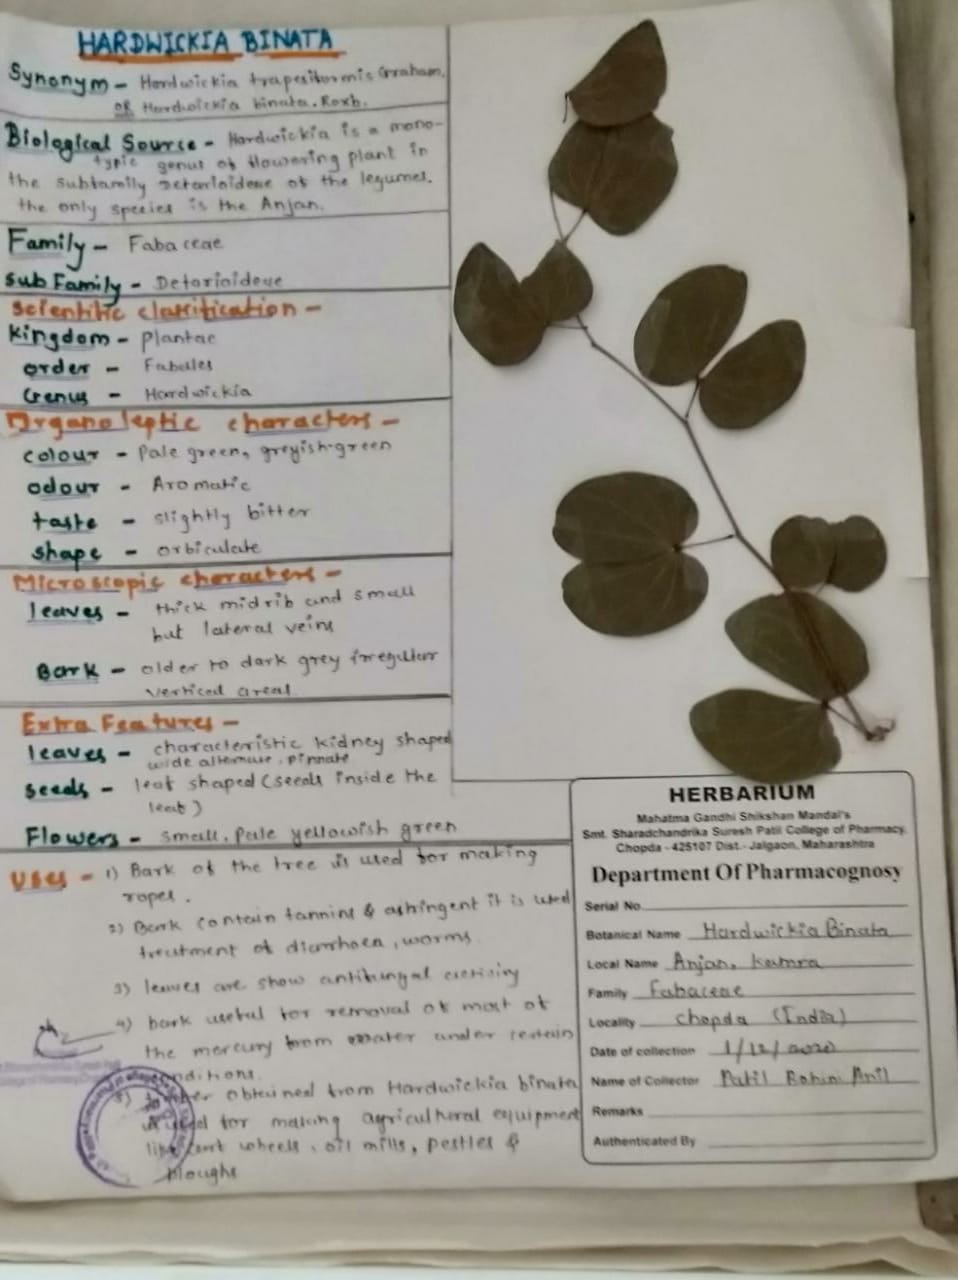 HARDWICKIA BINATA
Synonym - Hardwickia trapesiformis Graham.
OR Hardwickia binata. Roxb.
Biological Source - Hardwickia is a mono-
typic genus of flowering plant in
the subfamily Detarioideae of the legumes.
the only species is the Anjan.
Family - Fabaceae
Sub Family - Detarioideae
Scientific classification -
Kingdom - Plantae
order - Fabales
Genus - Hardwickia
Organoleptic characters -
colour - Pale green, greyish-green
odour - Aromatic
taste - slightly bitter
shape - orbiculate
Microscopic characters -
leaves - thick midrib and small
but lateral veins
Bark - older to dark grey irregular
verticed areal
Extra Features -
leaves - characteristic kidney shaped
wide alternate, pinnate
seeds - leaf shaped (seeds inside the
leaf)
Flowers - small, pale yellowish green
Uses - 1) Bark of the tree is used for making
ropes.
2) Bark contain tannins & astringent it is used
treatment of diarrhoea, worms.
3) leaves are show antifungal activity
4) bark useful for removal of most of
the mercury from water under certain
conditions.
5) obtained from Hardwickia binata
used for making agricultural equipment
like cart wheels, oil mills, pestles &
ploughs
HERBARIUM
Mahatma Gandhi Shikshan Mandal's
Smt. Sharadchandrika Suresh Patil College of Pharmacy,
Chopda - 425107 Dist.- Jalgaon, Maharashtra
Department Of Pharmacognosy
Serial No.
Botanical Name Hardwickia Binata
Local Name Anjan, kamra
Family Fabaceae
Locality Chopda (India)
Date of collection 1/12/2020
Name of Collector Patil Rohini Anil
Remarks
Authenticated By